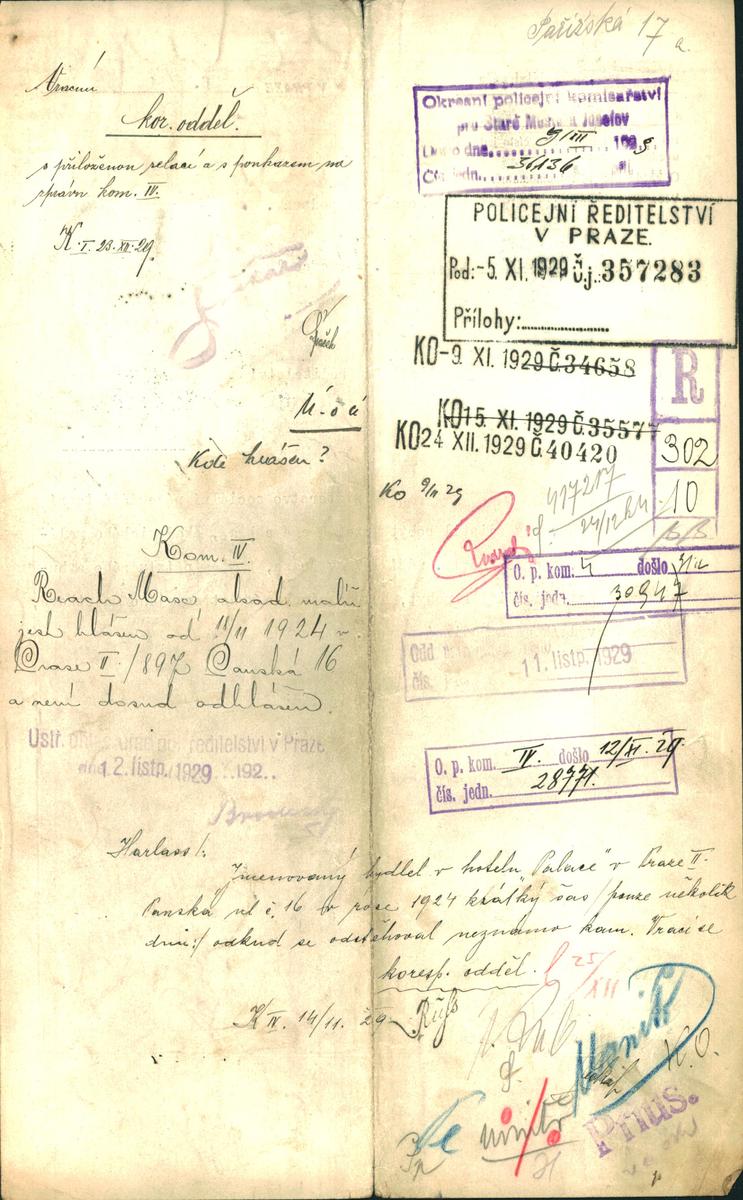 Pařížská 17
Vrací
kor. odděl.
s přiloženou relací a s poukazem na
zprávu kom. IV.
K. I. 23. XII. 29.
Ú-o á
Kde hlášen?
Kom. IV.
Reach Masc, akad. malíř
jest hlášen od 11/11 1924 v
Praze II/897 Panská 16
a není dosud odhlášen.
Ústř. ohlaš. úřad pol. ředitelství v Praze
dne 12. listp. 1929 192..
Harlass!:
Jmenovaný bydlel v hotelu „Palace" v Praze II.
Panská ul č. 16 v roce 1924 krátký čas /:pouze několik
dnů:/ odkud se odstěhoval neznámo kam. Vrací se
koresp. odděl.
K IV. 14/11. 29
Okresní policejní komisařství
pro Staré Město a Josefov
Došlo dne 9/XII 192 9
Čís. jedn. 36136
POLICEJNÍ ŘEDITELSTVÍ
V PRAZE.
Pod: -5. XI. 1929 Č.j.: 357283
Přílohy:
KO -9. XI. 1929 Č 34658
KO 15. XI. 1929 Č. 35577
KO 24 XII. 1929 Č 40420
R
302
10
Ko 9/11 29
417217
24/12
O. p. kom. 4 došlo
čís. jedn. 30947
Odd
čís.
11. listp. 1929
O. p. kom. IV. došlo 12/XI. 29.
čís. jedn. 28771.
25/
XII
K. O.
Prius.